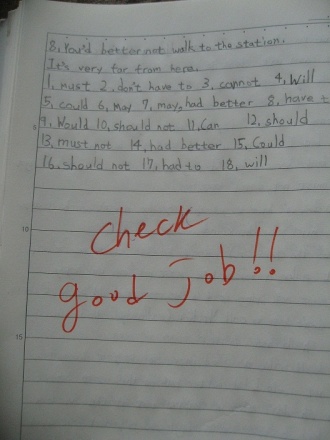 8, You'd better not walk to the station.
It's very far from here.
1, must 2, don't have to 3, cannot 4, Will
5, could 6, May 7, may, had better 8, have t
9, Would 10, should not 11, Can 12, should
13, must not 14, had better 15, Could
16, should not 17, had to 18, will
10
check
good job!!
15